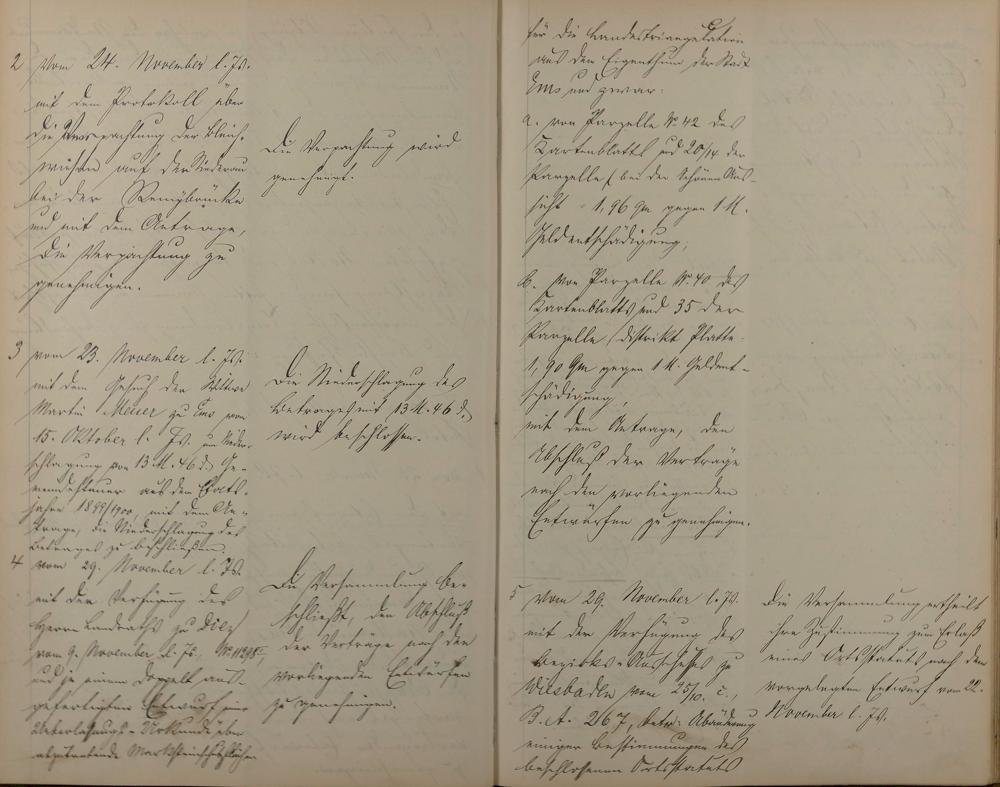 2 Vom 24. November l. Js.
mit dem Protokoll über
die Verpachtung der Bleich-
wiesen auf der Niederau
bei der Remybrücke
und mit dem Antrage,
die Verpachtung zu
genehmigen.
Die Verpachtung wird
genehmigt.
3 vom 23. November l. Js.
mit dem Gesuch der Wittwe
Martin Meuer zu Ems vom
15. Oktober l. Js. um Nieder-
schlagung von 13 M. 46 d. Ge-
meindesteuer aus dem Etats-
jahre 1899/1900, mit dem An-
trage, die Niederschlagung des
Betrages zu beschließen.
Die Niederschlagung des
Betrages mit 13 M. 46 d.
wird beschlossen.
4 vom 29. November l. Js.
mit der Verfügung des
Herrn Landraths zu Diez
vom 9. November l. Js.,
und je einem Doppelt aus-
gefertigten Entwurf einer
Ueberlassungs-Urkunde über
abzutretende Marksteinschutzflächen
Die Versammlung be-
schließt, den Abschluß
der Verträge nach den
vorliegenden Entwürfen
zu genehmigen.
für die Landestriangulation
aus dem Eigenthum der Stadt
Ems und zwar:
a. von Parzelle Nr. 42 des
Kartenblatts und 20/14 der
Parzelle (bei der Schönen Aus-
sicht = 1,96 qm gegen 1 M.
Geldentschädigung;
b. von Parzelle Nr. 40 des
Kartenblatts und 35 der
Parzelle, (Distrikt Platte
1,90 qm gegen 1 M. Geldent-
schädigung,
mit dem Antrage, den
Abschluß der Verträge
nach den vorliegenden
Entwürfen zu genehmigen.
5 Vom 29. November l. Js.
mit der Verfügung des
Bezirks-Ausschusses zu
Wiesbaden vom 25/10. c.,
B. A. 267, betr. Abänderung
einiger Bestimmungen des
beschlossenen Ortsstatuts
Die Versammlung ertheilt
ihre Zustimmung zum Erlaß
eines Ortsstatuts nach dem
vorgelegten Entwurf vom 22.
November l. Js.